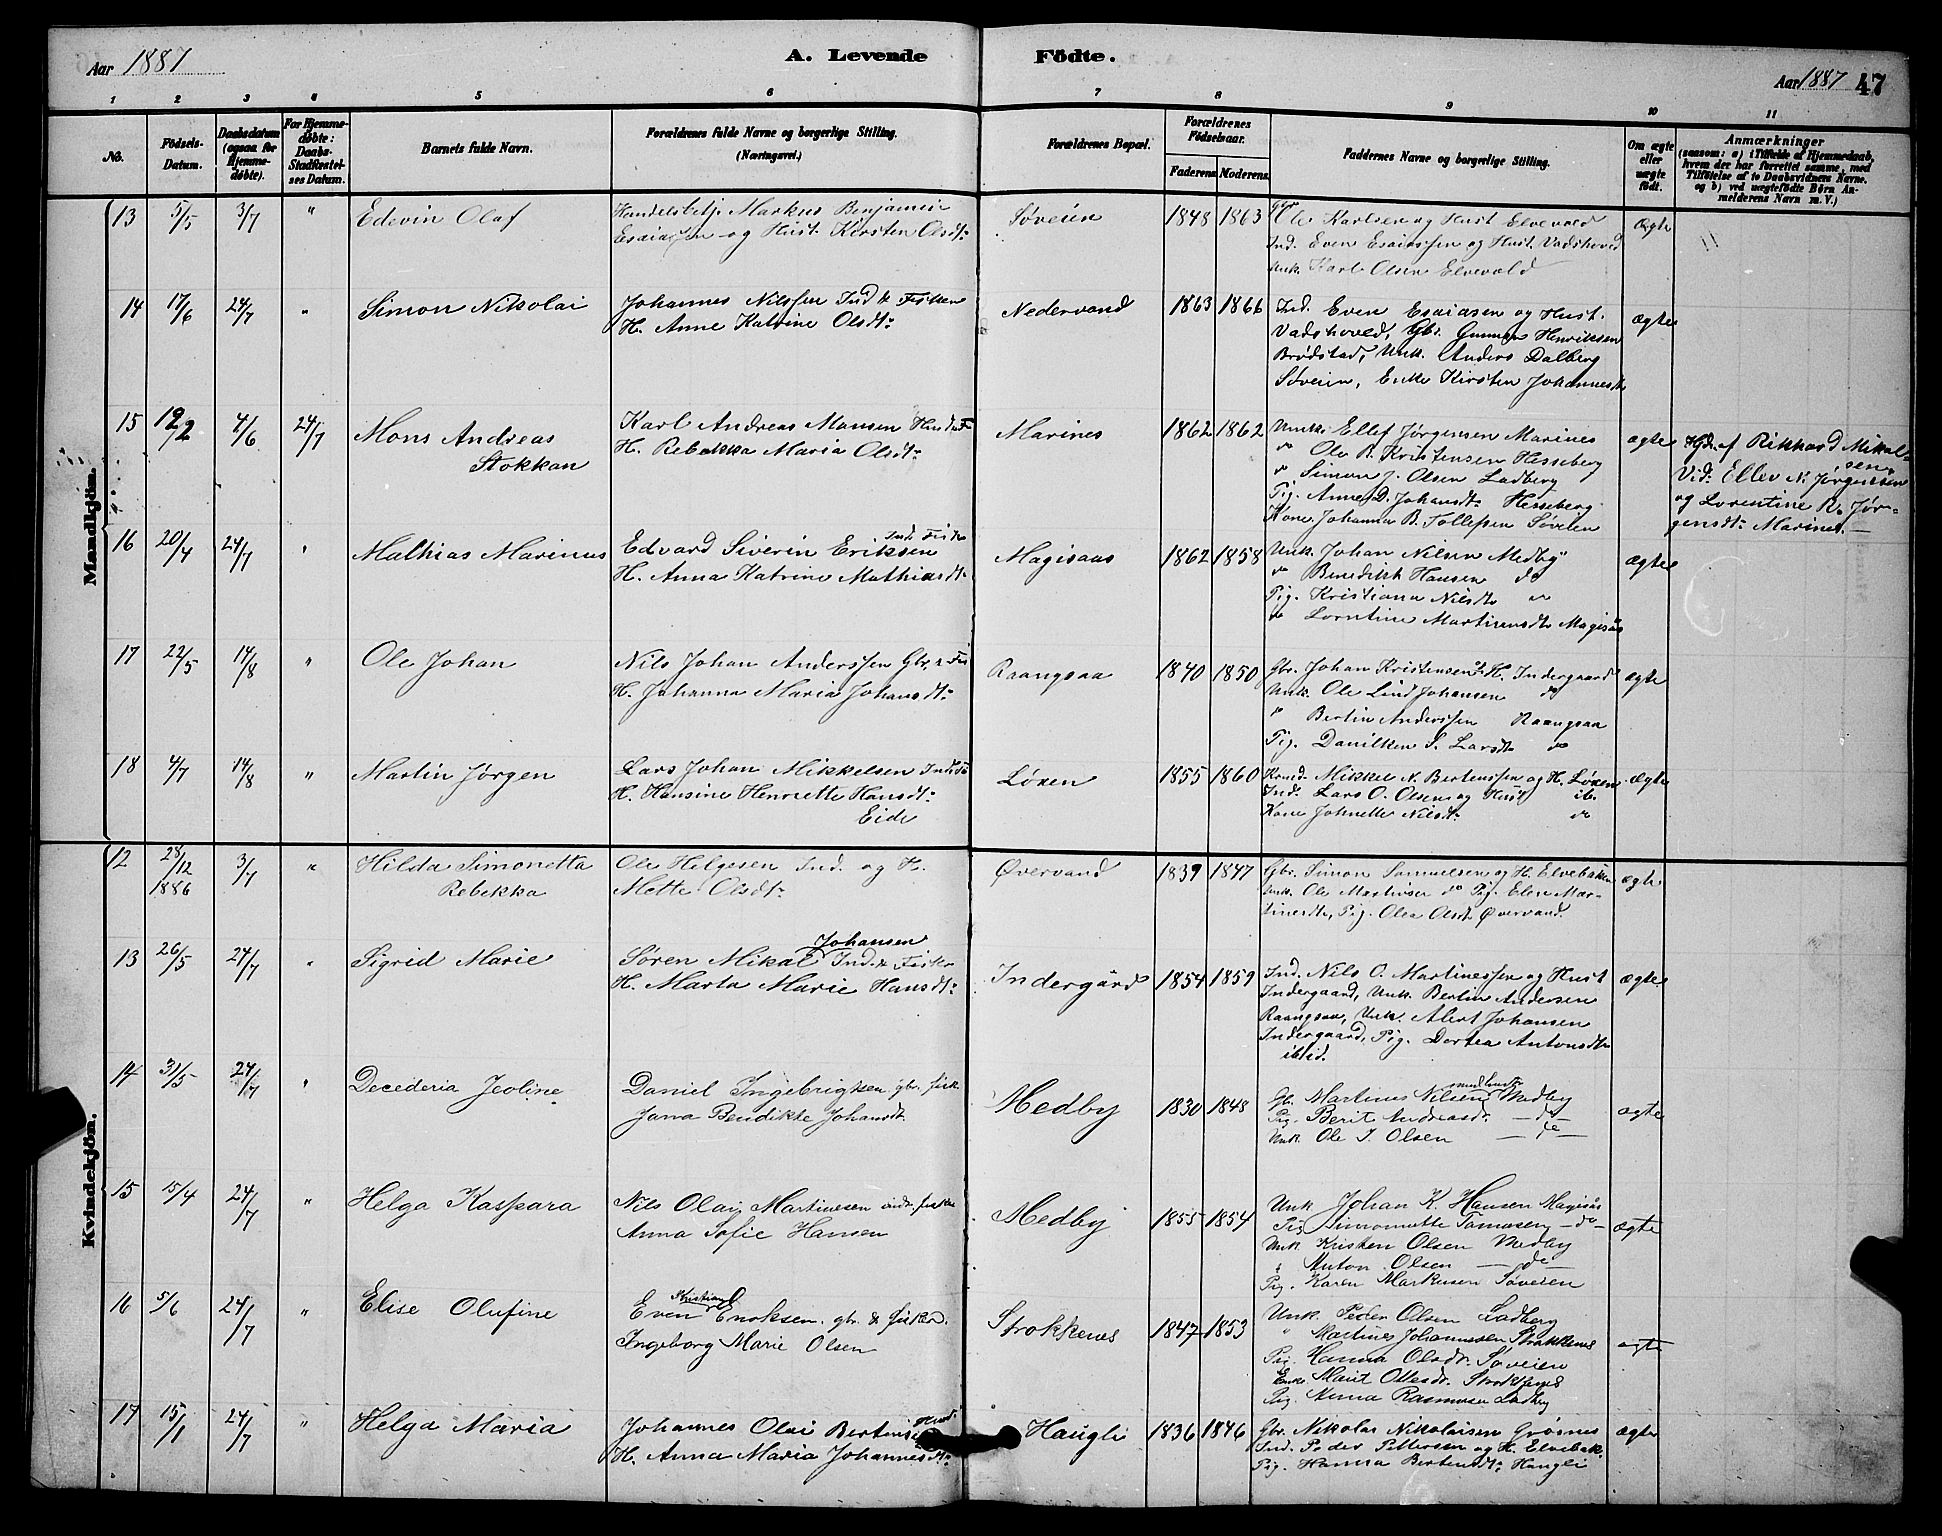 Aar 1887
A. Levende Födte.
Aar 1887 47
1 2 3 4 5 6 7 8 9 10 11
No.
Födsels-Datum.
Daabsdatum (ogsaa for Hjemme-döbte).
For Hjemme-döbte: Daabs-Stadfæstel-ses Datum.
Barnets fulde Navn.
Forældrenes fulde Navne og borgerlige Stilling. (Næringsvei.)
Forældrenes Bopæl.
Forældrenes Födselsaar.
Faderens Moderens
Faddernes Navne og borgerlige Stilling.
Om ægte eller uægte födt.
Anmærkninger
(saasom: a) i Tilfælde af Hjemmedaab, hvem der har forrettet samme, med Tilföielse af to Daabsvidners Navne. og b) ved uægtefödte Börn An-melderens Navn m. V.)
Mandkjön.
13 5/5 3/7 " Edevin Olaf
Handelsbetj. Markus Benjamin
Esaiassen og Hust. Kirsten Olsdt:
Søveien 1848 1863
Gbr. Ole Karlsen og Hust Elvevold
Ind. Even Esaiassen og Hust. Vadshoved
Unk. Karl Olsen Elvevold
Ægte
14 17/6 24/7 " Simon Nikolai
Johannes Nilssen Ind & Fisker
H. Anne Katrine Olsdt:
Nedervand 1863 1866
Ind. Even Esaiasen og Hust.
Vadshoved, Gbr. Gunnar Henriksen
Brødstad, Unk. Anders Dalberg
Søveien, Enke Kirsten Johannesdt
ægte
15 19/2 4/6 24/7 Mons Andreas
Stokkan
Karl Andreas Monsen
H. Rebekka Maria Olsdt:
Marines 1862 1862
Unk. Ellef Jørgensen Marines
do Ole R. Kristensen Hesseberg
do Simon J. Olsen Ladberg
Pig. Anne D. Johansdt: Hesseberg
Kone Johanna B. Tollefsen Søveien
ægte
Hjd. af Rikhard Mikal-
sen.
Vid: Ellev N. Jørgenssen
og Lorentine R. Jør-
gensdt: Marines.—
16 20/4 24/7 " Mathias Marinus
Ind. Fisk
Edvard Siverin Eriksen
H. Anna Katrine Mathiasdt:
Magisaas 1862 1858
Unk. Johan Nilsen Medby
do Benedikt Hansen do
Pig. Kristiana Nilsdt do
do Lorntine Martinensdt: Magisås
ægte
17 22/5 14/8 " Ole Johan
Nils Johan Anderssen Gbr. & Fis
H. Johanna Maria Johansdt:
Raangsaa 1840 1850
Gbr. Johan Kristensen & H. Indergaard
Unk. Ole Lind Johansen do
" Bertin Anderssen Raangsaa
Pig. Danilken S. Larsdt do
ægte
18 4/7 14/8 " Martin Jørgen
Lars Johan Mikkelsen Ind & Fi
H. Hansine Henriette Hansdt:
Eide
Løxen 1855 1860
Mikkel N. Bertenssen og H. Løxen
Ind. Lars O. Olsen og Hust ib.
Kone Johnette Nilsdt: do
Ægte
Kvindekjön.
12 28/12 1886 3/7 " Hilda Simonetta
Rebekka
Ole Helgesen Ind. og H.
Mette Olsdt:
Øvervand 1839 1847
Gbr. Simon Samuelsen og H. Elvebakken
Unk. Ole Martinsen do Pig. Elen Mar-
tinesdt, Pig. Olea Olsdt Øvervand.
ægte
13 26/5 24/7 " Sigrid Marie
Johansen
Søren Mikal Ind. & Fisker
H. Marta Marie Hansdt:
Indergård 1854 1859
Ind. Nils O. Martinessen og Hust
Indergaard, Unk. Bertin Andersen
Raangsaa, Unk. Albert Johansen
Indergaard, Pig. Dortea Antonsdt:
ibid.
ægte
14 31/5 24/7 " Decederia Jeoline
Daniel Ingebrigtsen gbr. fisk
Jana Bendikte Johansdt.
Medby 1830 1848
Gb. Martines Nilsen med hustr Medby
Pig. Berit Andreasdt. — do —
Unk Ole J. Olsen — do —
ægte
15 15/4 24/7 " Helga Kaspara
Nils Olai Martinesen inde. fisker
Anna Sofie Hansen
Medby 1855 1854
Unk Johan K. Hansen Magisås
Pig Simonette Tomasen — do —
Unk Kristen Olsen Medby
" Anton Olsen — do —
Pig. Karen Markusen Søveien
ægte
16 5/6 24/7 " Elise Olufine
Kristian
Even Enoksen. gbr. & fisker.
Ingeborg Marie Olsen
Strokkenes 1847 1853
Unk. Peder Olsen Ladberg
" Martines Johannessen Strokkenes
Pig. Hanna Olsdt. Søveien
Enke Marit Ottesdt. Strokkenes
Pig. Anna Rasmusen Ladberg
ægte
17 15/1 24/7 " Helga Maria
Johannes Olai Bertens
H. Anna Maria Johannesdt:
Haugli 1836 1846
Gbr. Nikolai Nikolaisen Grøsnes
Ind. Peder Pettersen og H. Elvebak.
Pig. Hanna Bertensdt: Haugli
ægte